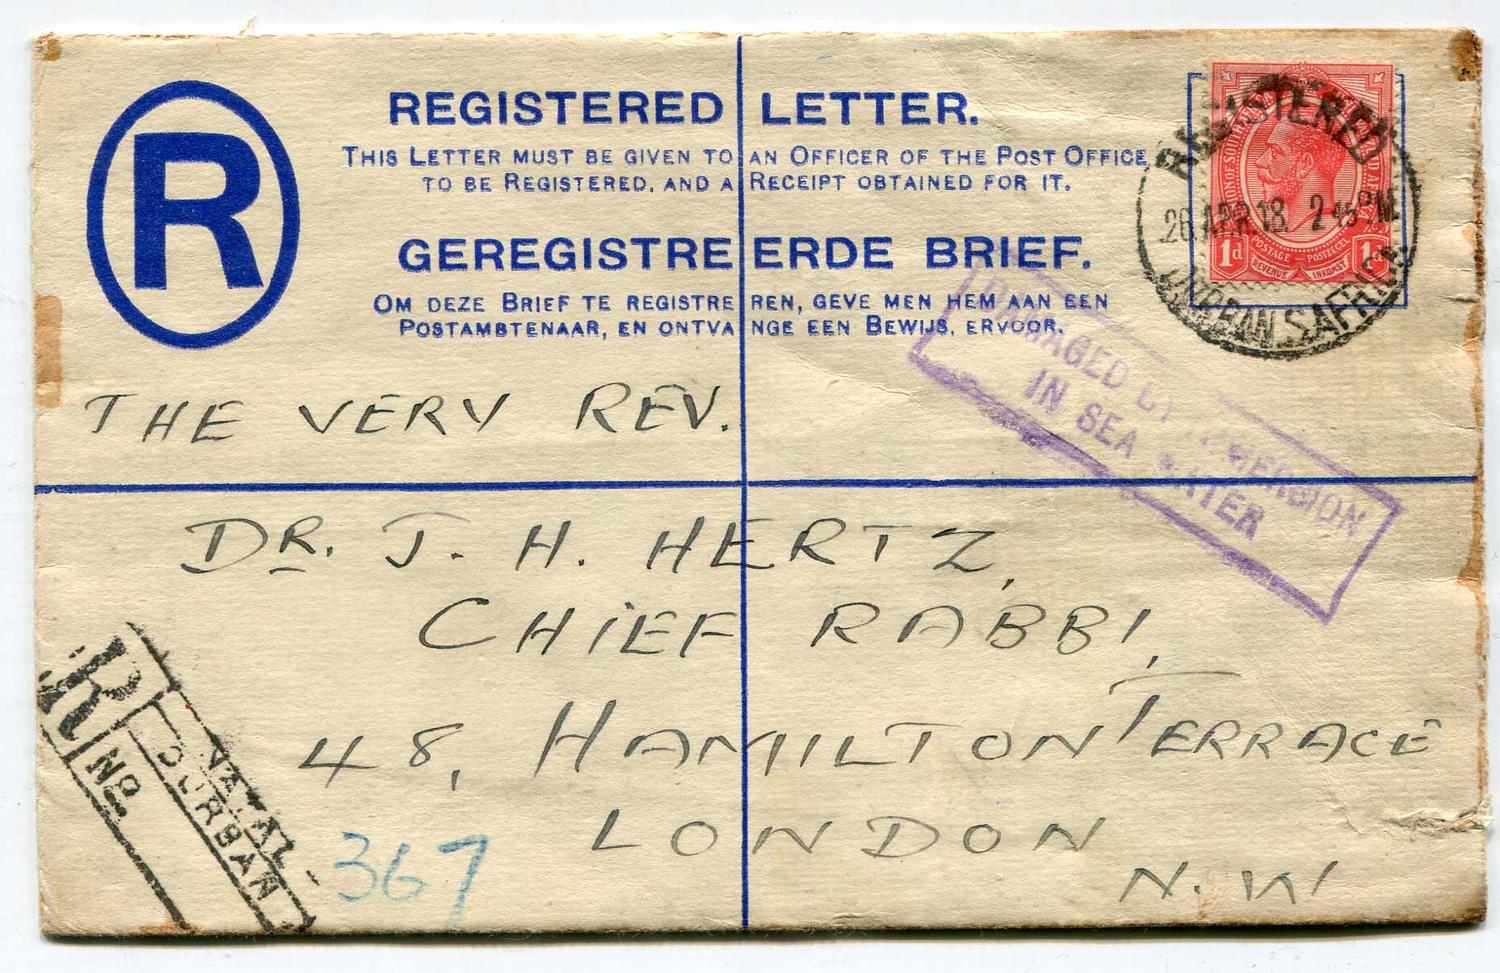 R
REGISTERED LETTER.
THIS LETTER MUST BE GIVEN TO AN OFFICER OF THE POST OFFICE
TO BE REGISTERED, AND A RECEIPT OBTAINED FOR IT.
GEREGISTREERDE BRIEF.
OM DEZE BRIEF TE REGISTREREN, GEVE MEN HEM AAN EEN
POSTAMBTENAAR, EN ONTVANGE EEN BEWIJS, ERVOOR.
REGISTERED
26 APR 18 2 45 PM
DURBAN S. AFRICA
1d POSTAGE POSTZEGEL 1d
REVENUE INKOMST
DAMAGED BY IMMERSION
IN SEA WATER
THE VERY REV.
DR. J. H. HERTZ,
CHIEF RABBI,
48, HAMILTON TERRACE
LONDON
N.W
R
No
NATAL
DURBAN
367